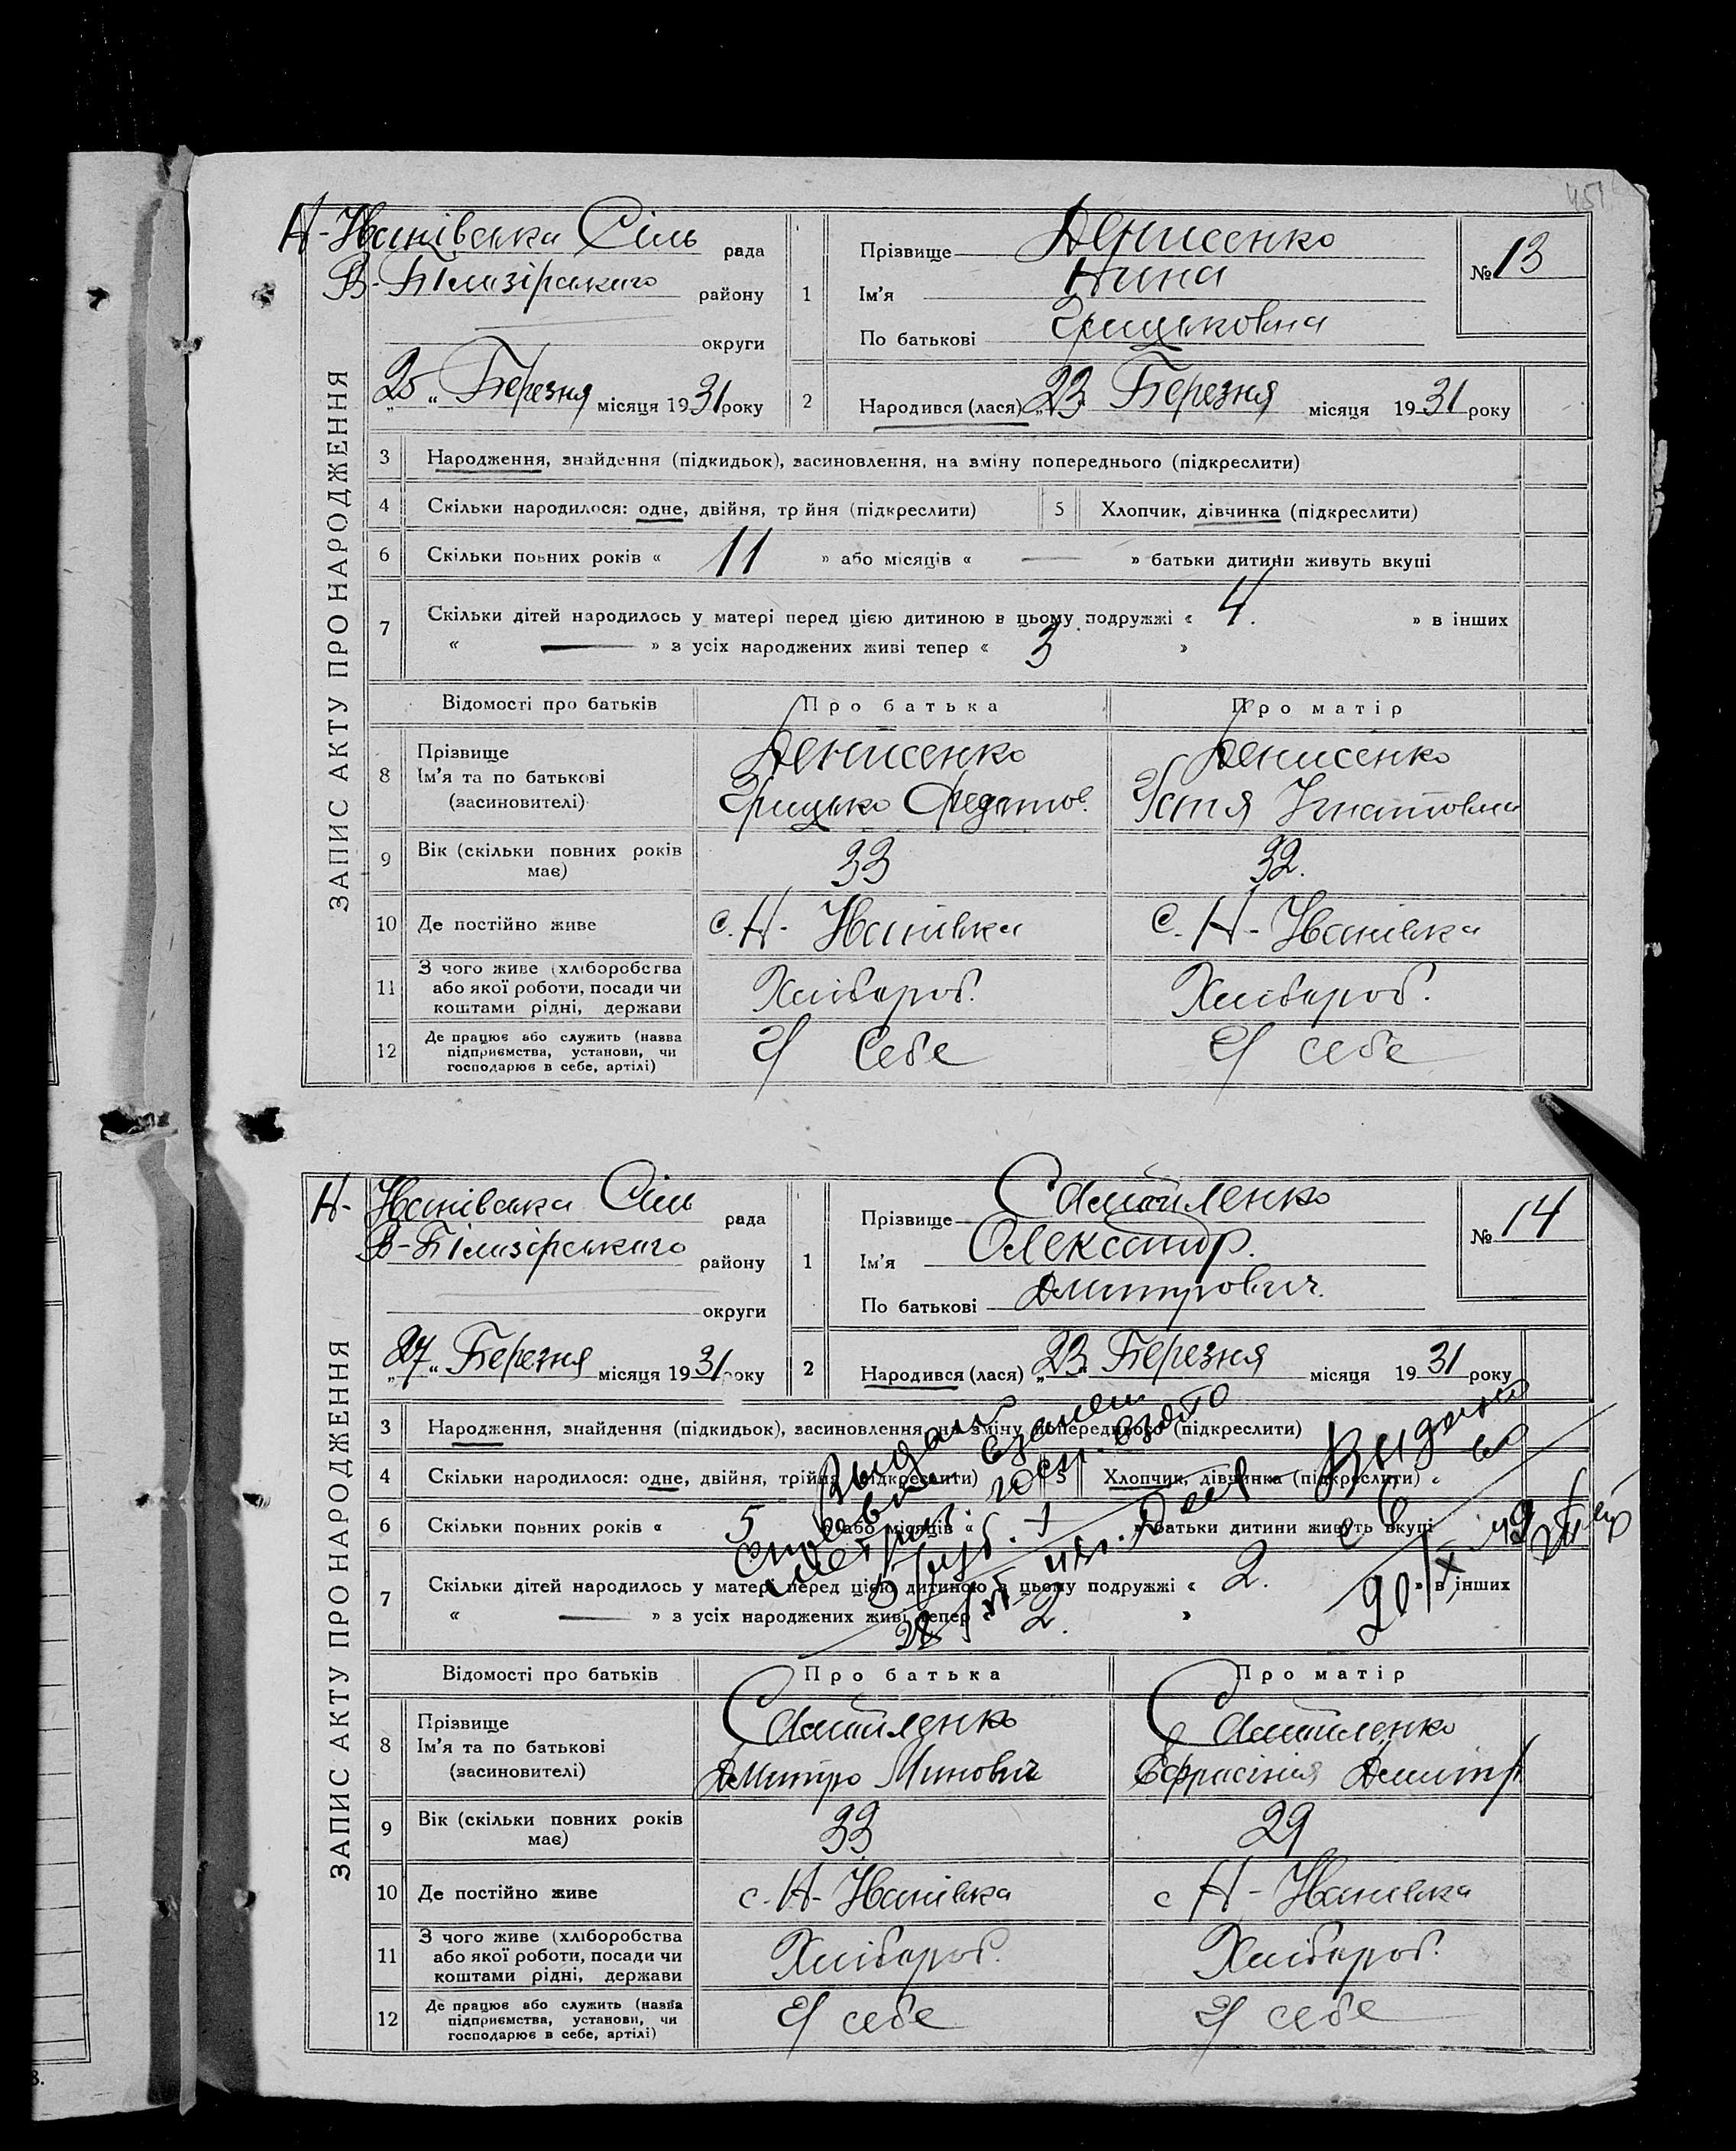 451
ЗАПИС АКТУ ПРО НАРОДЖЕННЯ
Н-Іванівська Сіль рада
В-Білазірського району
округи
„25“ Березня місяця 1931 року
1 Прізвище Денисенко
Ім'я Нина
По батькові Грицьковна
№ 13
2 Народився (лася) „23“ Березня місяця 1931 року
3 Народження, знайдення (підкидьок), засиновлення, на зміну попереднього (підкреслити)
4 Скільки народилося: одне, двійня, тр йня (підкреслити) 5 Хлопчик, дівчинка (підкреслити)
6 Скільки повних років « 11 » або місяців « — » батьки дитини живуть вкупі
7 Скільки дітей народилось у матері перед цією дитиною в цьому подружжі « 4. » в інших
« — » з усіх народжених живі тепер « 3 »
Відомості про батьків Про батька Про матір
8 Прізвище Денисенко Денисенко
Ім'я та по батькові Грицько Федотов. Устя Игнатовна
(засиновителі)
9 Вік (скільки повних років має) 33 32.
10 Де постійно живе с. Н- Іванівка с. Н- Іванівка
11 З чого живе (хліборобства Хлібароб. Хлібароб.
або якої роботи, посади чи
коштами рідні, держави
12 Де працює або служить (назва У себе У себе
підприємства, установи, чи
господарює в себе, артілі)
ЗАПИС АКТУ ПРО НАРОДЖЕННЯ
Н- Іванівська Сіль рада
В-Білазірського району
округи
„27“ Березня місяця 1931 року
1 Прізвище Самійленко
Ім'я Олександр.
По батькові Дмитрович.
№ 14
2 Народився (лася) „23“ Березня місяця 1931 року
3 Народження, знайдення (підкидьок), засиновлення, на зміну попереднього (підкреслити)
4 Скільки народилося: одне, двійня, трійня (підкреслити) 5 Хлопчик, дівчинка (підкреслити)
6 Скільки повних років « 5 » або місяців « — » батьки дитини живуть вкупі
7 Скільки дітей народилось у матері перед цією дитиною в цьому подружжі « 2. » в інших
« — » з усіх народжених живі тепер 2. »
Відомості про батьків Про батька Про матір
8 Прізвище Самійленко Самійленко
Ім'я та по батькові Дмитро Минович Єфрасінія Дмитр
(засиновителі)
9 Вік (скільки повних років має) 33 29
10 Де постійно живе с. Н- Іванівка с Н- Іванівка
11 З чого живе (хліборобства Хлібароб. Хлібароб.
або якої роботи, посади чи
коштами рідні, держави
12 Де працює або служить (назва У себе У себе
підприємства, установи, чи
господарює в себе, артілі)